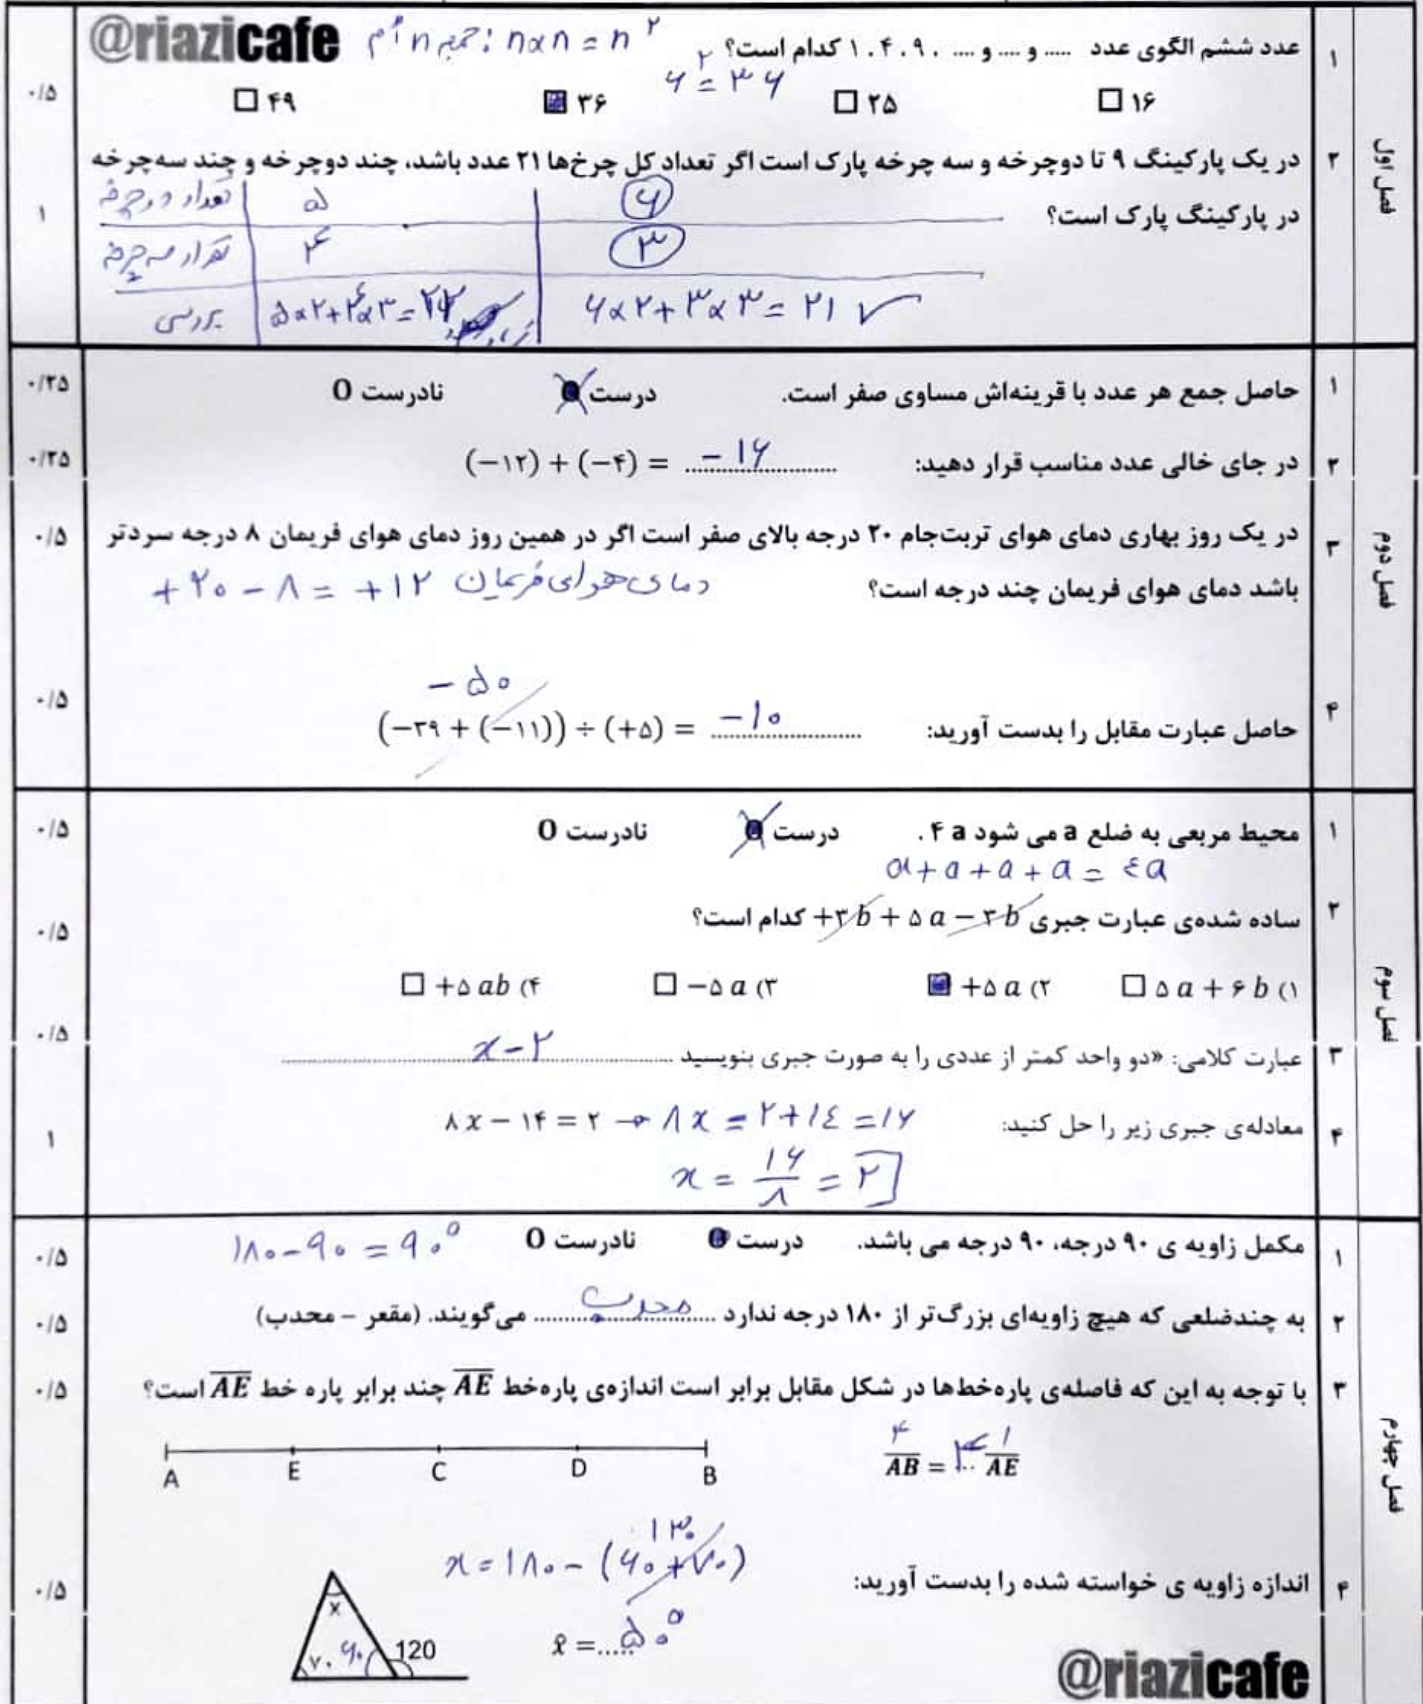 @riazicafe جمله n اُم : n×n = n²
فصل اول
۱ عدد ششم الگوی عدد ..... و .... و .... ۱،۴،۹،۰ کدام است؟
۶² = ۳۶
۰/۵
□ ۱۶ □ ۲۵ ■ ۳۶ □ ۴۹
۲ در یک پارکینگ ۹ تا دوچرخه و سه چرخه پارک است اگر تعداد کل چرخ‌ها ۲۱ عدد باشد، چند دوچرخه و چند سه‌چرخه
در پارکینگ پارک است؟
۱
تعداد دوچرخه ۵ ۶
تعداد سه چرخه ۴ ۳
بررسی ۵×۲+۴×۳=۲۲ ۶×۲+۳×۳=۲۱ ✓
فصل دوم
۱ حاصل جمع هر عدد با قرینه‌اش مساوی صفر است. درست نادرست O ۰/۲۵
۲ در جای خالی عدد مناسب قرار دهید: (−۱۲) + (−۴) = −۱۶ ۰/۲۵
۳ در یک روز بهاری دمای هوای تربت‌جام ۲۰ درجه بالای صفر است اگر در همین روز دمای هوای فریمان ۸ درجه سردتر ۰/۵
باشد دمای هوای فریمان چند درجه است؟ دمای هوای فریمان +۲۰ − ۸ = +۱۲
−۵۰
۴ حاصل عبارت مقابل را بدست آورید: (−۳۹ + (−۱۱)) ÷ (+۵) = −۱۰ ۰/۵
فصل سوم
۱ محیط مربعی به ضلع a می شود ۴a . درست نادرست O ۰/۵
a+a+a+a = ٤a
۲ ساده شده‌ی عبارت جبری +۳b + ۵a − ۳b کدام است؟ ۰/۵
۱) ۵a + ۶b □ ۲) +۵a ■ ۳) −۵a □ ۴) +۵ab □
۳ عبارت کلامی: «دو واحد کمتر از عددی را به صورت جبری بنویسید x−۲ ۰/۵
۴ معادله‌ی جبری زیر را حل کنید: ۸x − ۱۴ = ۲ → ۸x = ۲+۱٤ = ۱۶ ۱
x = ۱۶/۸ = ۲
فصل چهارم
۱ مکمل زاویه ی ۹۰ درجه، ۹۰ درجه می باشد. درست نادرست O ۱۸۰−۹۰ = ۹۰° ۰/۵
۲ به چندضلعی که هیچ زاویه‌ای بزرگ‌تر از ۱۸۰ درجه ندارد محدب می‌گویند. (مقعر – محدب) ۰/۵
۳ با توجه به این که فاصله‌ی پاره‌خط‌ها در شکل مقابل برابر است اندازه‌ی پاره‌خط AE چند برابر پاره خط AE است؟ ۰/۵
۴ ۱
AB = ۴ AE
A E C D B
۴ اندازه زاویه ی خواسته شده را بدست آورید: ۰/۵
۱۳۰
x = ۱۸۰ − (۶۰+۷۰)
x̂ = ۵۰°
x ۷۰ ۶۰ 120
@riazicafe